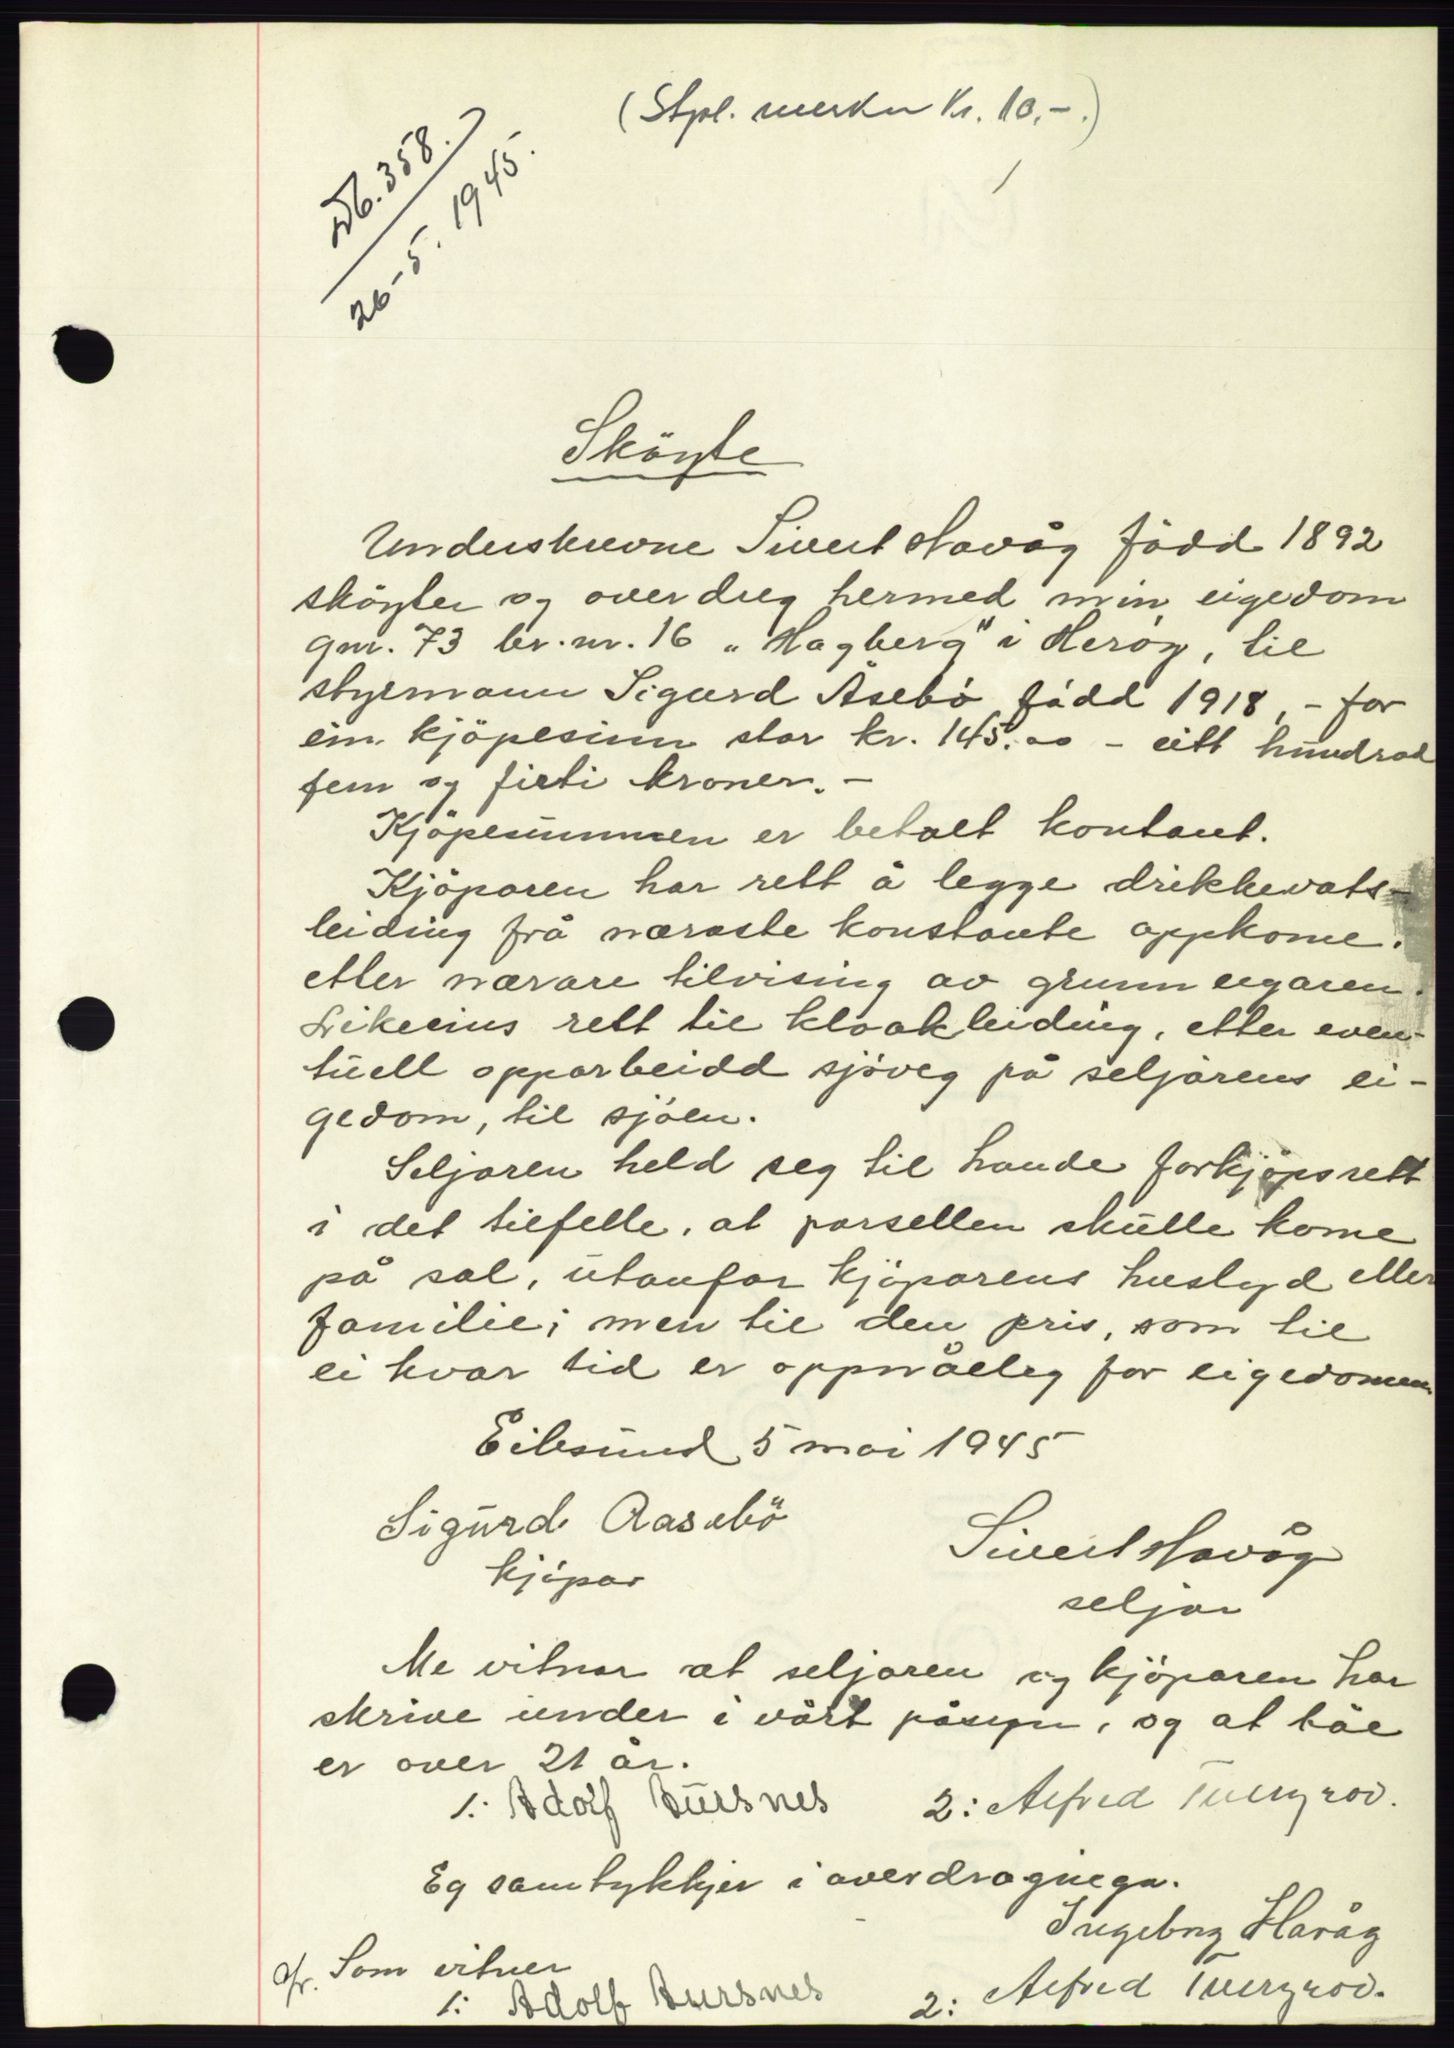 (Stpl. merker Kr. 10.-.)
Nb. 358.
26-5. 1945.
Sköyte
Underskrevne Sivert Havåg född 1892
sköyter og overdreg hermed min eigedom
gnr. 73 br.nr. 16 „Hagberg" i Heröy, til
styrmann Sigurd Åsebö född 1918, - for
ein kjöpesum stor kr. 145.00 - eitt hundrad
fem og firti kroner. -
Kjöpesummen er betalt kontant.
Kjöparen har rett å legge drikkevats-
leiding frå næraste konstante oppkome.
etter nærare tilvising av grunneigaren.
Likeeins rett til kloakleiding, etter even-
tuell opparbeidd sjöveg på seljarens ei-
gedom, til sjöen.
Seljaren held seg til hande forkjöpsrett
i det tilfelle, at parsellen skulle kome
på sal, utanfor kjöparens huslyd eller
familie; men til den pris, som til
ei kvar tid er oppnåeleg for eigedomen.
Eiksund 5 mai 1945
Sigurd Aasebö
kjöpar
Sivert Havåg
seljar
Me vitnar at seljaren og kjöparen har
skrive under i vårt påsyn, og at båe
er over 21 år.
1: Adolf Aursnes 2: Alfred
Eg samtykkjer i overdragnega.
Ingeborg Havåg
Som vitner
1: Adolf Aursnes 2: Alfred